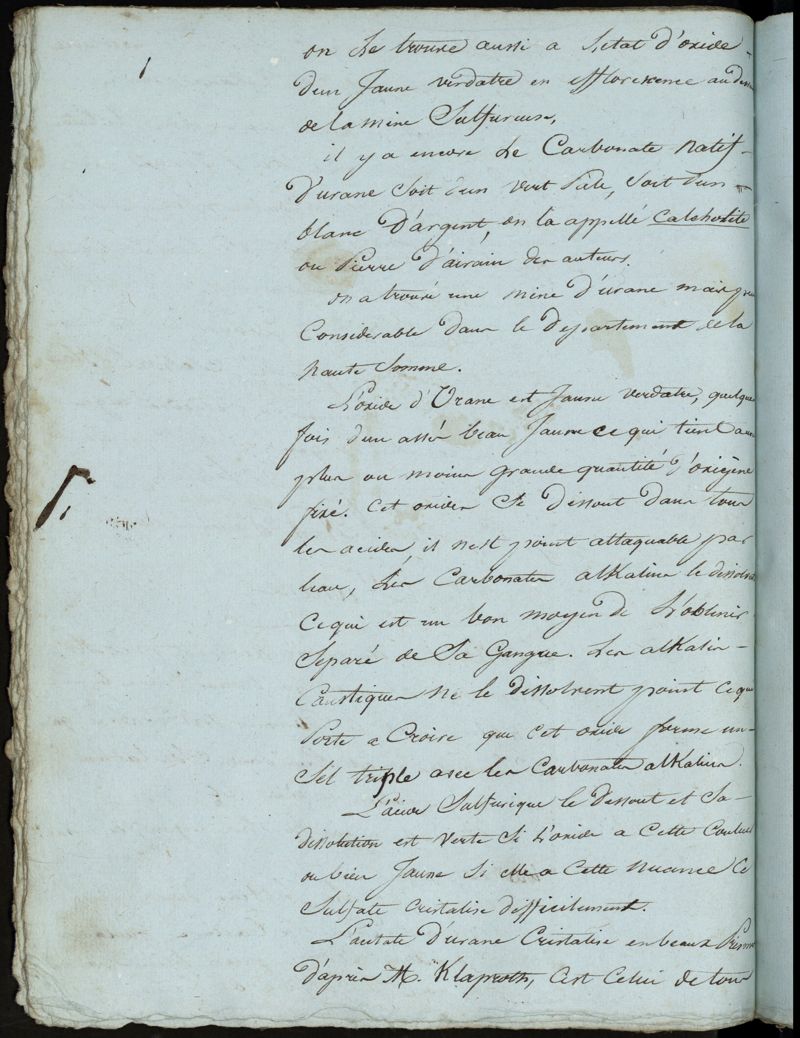 on le trouve aussi a l'etat d'oxide
d'un Jaune verdatre en efflorescence au dessus
de la mine Sulfureuse,
il y a encore le Carbonate natif
D'urane soit d'un vert Pale, soit d'un
blanc D'argent, on la appellé Calcholite
ou Pierre d'airain des auteurs.
on a trouvé une mine D'urane mais peu
Considerable dans le Departement de la
haute Somme.
L'oxide d'Urane est Jaune verdatre, quelque
fois d'un assés beau Jaune ce qui tient a une
plus ou moins grande quantité d'oxigène
fixé. Cet oxide se dissout dans tous
les acides, il n'est point attaquable par
l'eau, Les Carbonates alkalins le dissolvent
Ce qui est un bon moyen de l'obtenir
Separé de Sa Gangue. Les alkalis
Caustiques ne le dissolvent point Ce qui
Porte a Croire que cet oxide forme un
Sel triple avec les Carbonates alkalins.
L'acide Sulfurique le dissout et Sa
dissolution est verte Si l'oxide a Cette Couleur
ou bien Jaune Si elle a Cette nuance Ce
Sulfate Cristalise difficilement.
L'acetate d'urane Cristalise en beaux Prismes
D'après M. Klaproth, C'est Celui de tous